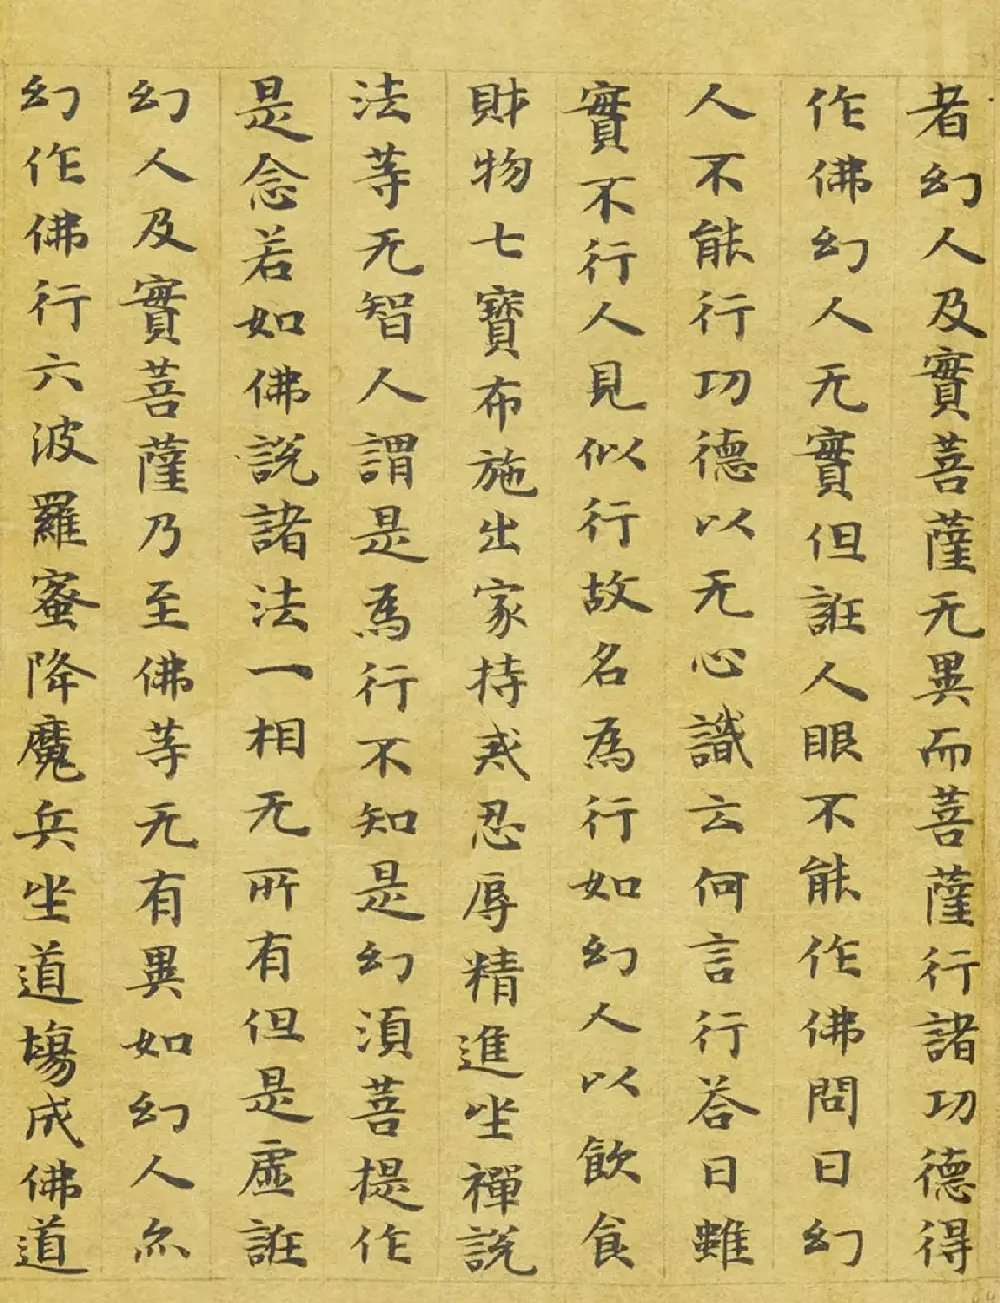 者幻人及實菩薩无異而菩薩行諸功德得
作佛幻人无實但誑人眼不能作佛問曰幻
人不能行功德以无心識云何言行荅曰雖
實不行人見似行故名為行如幻人以飲食
財物七寶布施出家持戒忍辱精進坐禪說
法等无智人謂是為行不知是幻須菩提作
是念若如佛說諸法一相无所有但是虛誑
幻人及實菩薩乃至佛等无有異如幻人亦
幻作佛行六波羅蜜降魔兵坐道場成佛道